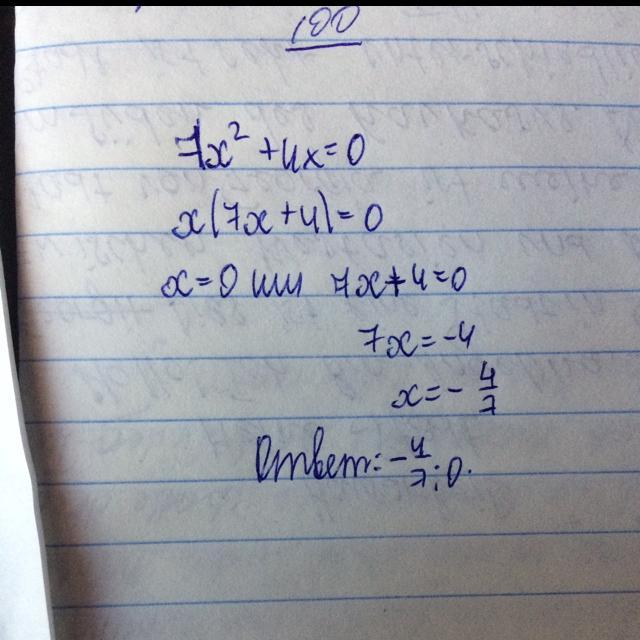 100
7x² + 4x = 0
x(7x + 4) = 0
x = 0 или 7x + 4 = 0
7x = -4
x = - 4/7
Ответ: - 4/7; 0.